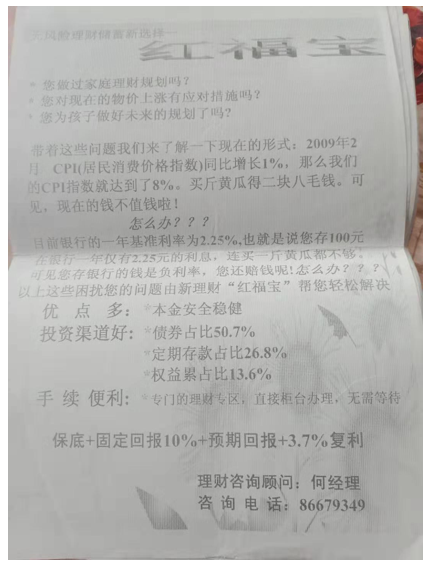 无风险理财储蓄新选择—
红福宝
* 您做过家庭理财规划吗?
* 您对现在的物价上涨有应对措施吗?
* 您为孩子做好未来的规划了吗?
带着这些问题我们来了解一下现在的形式:2009年2
月 CPI(居民消费价格指数)同比增长1%,那么我们
的CPI指数就达到了8%。买斤黄瓜得二块八毛钱。可
见,现在的钱不值钱啦!
怎么办???
目前银行的一年基准利率为2.25%,也就是说您存100元
在银行一年仅有2.25元的利息,连买一斤黄瓜都不够?
可见您存银行的钱是负利率,您还赔钱呢!怎么办???
以上这些困扰您的问题由新理财“红福宝”帮您轻松解决
优 点 多: *本金安全稳健
投资渠道好: *债券占比50.7%
*定期存款占比26.8%
*权益累占比13.6%
手 续 便利: *专门的理财专区,直接柜台办理,无需等待
保底+固定回报10%+预期回报+3.7%复利
理财咨询顾问:何经理
咨 询 电 话:86679349